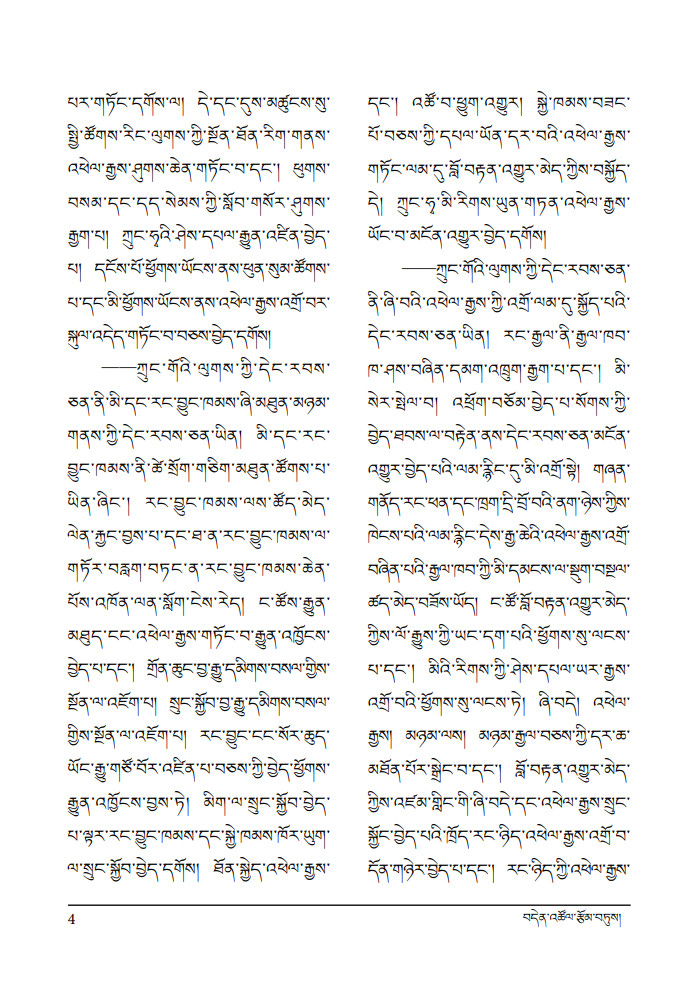 པར་གཏོང་དགོས་ལ། དེ་དང་དུས་མཚུངས་སུ་
སྤྱི་ཚོགས་རིང་ལུགས་ཀྱི་སྔོན་ཐོན་རིག་གནས་
འཕེལ་རྒྱས་ཤུགས་ཆེན་གཏོང་བ་དང་། ཕུགས་
བསམ་དང་དད་སེམས་ཀྱི་སློབ་གསོར་ཤུགས་
རྒྱག་པ། ཀྲུང་ཧྭའི་ཤེས་དཔལ་རྒྱུན་འཛིན་བྱེད་
པ། དངོས་པོ་ཕྱོགས་ཡོངས་ནས་ཕུན་སུམ་ཚོགས་
པ་དང་མི་ཕྱོགས་ཡོངས་ནས་འཕེལ་རྒྱས་འགྲོ་བར་
སྐུལ་འདེད་གཏོང་བ་བཅས་བྱེད་དགོས།
——ཀྲུང་གོའི་ལུགས་ཀྱི་དེང་རབས་
ཅན་ནི་མི་དང་རང་བྱུང་ཁམས་ཞི་མཐུན་མཉམ་
གནས་ཀྱི་དེང་རབས་ཅན་ཡིན། མི་དང་རང་
བྱུང་ཁམས་ནི་ཚེ་སྲོག་གཅིག་མཐུན་ཚོགས་པ་
ཡིན་ཞིང་། རང་བྱུང་ཁམས་ལས་ཚོད་མེད་
ལེན་རྐྱང་བྱས་པ་དང་ཐ་ན་རང་བྱུང་ཁམས་ལ་
གཏོར་བརླག་བཏང་ན་རང་བྱུང་ཁམས་ཆེན་
པོས་འཁོན་ལན་སློག་ངེས་རེད། ང་ཚོས་རྒྱུན་
མཐུད་ངང་འཕེལ་རྒྱས་གཏོང་བ་རྒྱུན་འཁྱོངས་
བྱེད་པ་དང་། གྲོན་ཆུང་བྱ་རྒྱུ་དམིགས་བསལ་གྱིས་
སྔོན་ལ་འཇོག་པ། སྲུང་སྐྱོབ་བྱ་རྒྱུ་དམིགས་བསལ་
གྱིས་སྔོན་ལ་འཇོག་པ། རང་བྱུང་ངང་སོར་ཆུད་
ཡོང་རྒྱུ་གཙོ་བོར་འཛིན་པ་བཅས་ཀྱི་བྱེད་ཕྱོགས་
རྒྱུན་འཁྱོངས་བྱས་ཏེ། མིག་ལ་སྲུང་སྐྱོབ་བྱེད་
པ་ལྟར་རང་བྱུང་ཁམས་དང་སྐྱེ་ཁམས་ཁོར་ཡུག་
ལ་སྲུང་སྐྱོབ་བྱེད་དགོས། ཐོན་སྐྱེད་འཕེལ་རྒྱས་
དང་། འཚོ་བ་ཕྱུག་འགྱུར། སྐྱེ་ཁམས་བཟང་
པོ་བཅས་ཀྱི་དཔལ་ཡོན་དར་བའི་འཕེལ་རྒྱས་
གཏོང་ལམ་དུ་བློ་བརྟན་འགྱུར་མེད་ཀྱིས་བསྐྱོད་
དེ། ཀྲུང་ཧྭ་མི་རིགས་ཡུན་གཏན་འཕེལ་རྒྱས་
ཡོང་བ་མངོན་འགྱུར་བྱེད་དགོས།
——ཀྲུང་གོའི་ལུགས་ཀྱི་དེང་རབས་ཅན་
ནི་ཞི་བའི་འཕེལ་རྒྱས་ཀྱི་འགྲོ་ལམ་དུ་སྐྱོད་པའི་
དེང་རབས་ཅན་ཡིན། རང་རྒྱལ་ནི་རྒྱལ་ཁབ་
ཁ་ཤས་བཞིན་དམག་འཁྲུག་རྒྱག་པ་དང་། མི་
སེར་སྤེལ་བ། འཕྲོག་བཅོམ་བྱེད་པ་སོགས་ཀྱི་
བྱེད་ཐབས་ལ་བརྟེན་ནས་དེང་རབས་ཅན་མངོན་
འགྱུར་བྱེད་པའི་ལམ་རྙིང་དུ་མི་འགྲོ་སྟེ། གཞན་
གནོད་རང་ཕན་དང་ཁྲག་དྲི་བྲོ་བའི་ནག་ཉེས་ཀྱིས་
ཁེངས་པའི་ལམ་རྙིང་དེས་རྒྱ་ཆེའི་འཕེལ་རྒྱས་འགྲོ་
བཞིན་པའི་རྒྱལ་ཁབ་ཀྱི་མི་དམངས་ལ་སྡུག་བསྔལ་
ཚད་མེད་བཟོས་ཡོད། ང་ཚོ་བློ་བརྟན་འགྱུར་མེད་
ཀྱིས་ལོ་རྒྱུས་ཀྱི་ཡང་དག་པའི་ཕྱོགས་སུ་ལངས་
པ་དང་། མིའི་རིགས་ཀྱི་ཤེས་དཔལ་ཡར་རྒྱས་
འགྲོ་བའི་ཕྱོགས་སུ་ལངས་ཏེ། ཞི་བདེ། འཕེལ་
རྒྱས། མཉམ་ལས། མཉམ་རྒྱལ་བཅས་ཀྱི་དར་ཆ་
མཐོན་པོར་སྒྲེང་བ་དང་། བློ་བརྟན་འགྱུར་མེད་
ཀྱིས་འཛམ་གླིང་གི་ཞི་བདེ་དང་འཕེལ་རྒྱས་སྲུང་
སྐྱོང་བྱེད་པའི་ཁྲོད་རང་ཉིད་འཕེལ་རྒྱས་འགྲོ་བ་
དོན་གཉེར་བྱེད་པ་དང་། རང་ཉིད་ཀྱི་འཕེལ་རྒྱས་
4
བདེན་འཚོལ་རྩོམ་བཏུས།